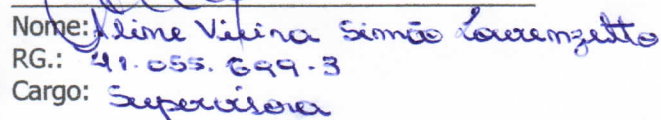 Nome: Aline Vieira Simão Lourenzetto
RG.: 41.055.699-3
Cargo: Supervisora